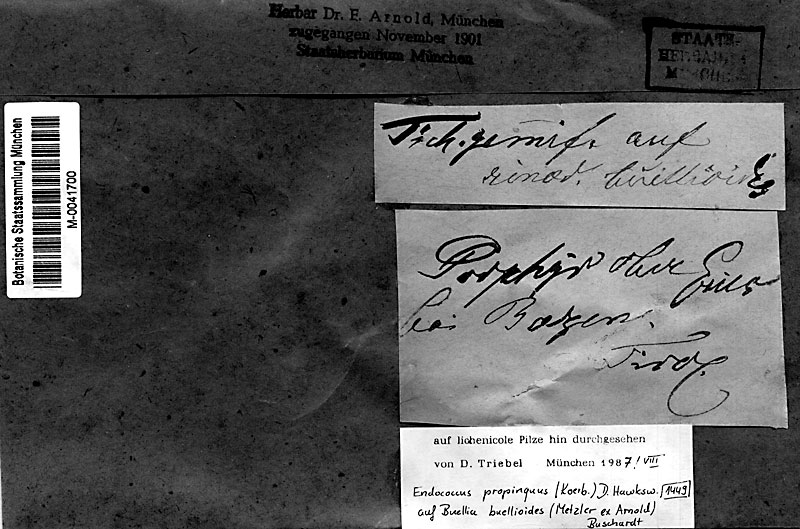 Herbar Dr. F. Arnold, München
zugegangen November 1901
Staatsherbarium München
STAATS-
HERBARIUM
MÜNCHEN
Botanische Staatssammlung München
M-0041700
Tich. gemmif. auf
rinod. buellioid.
Porphyr ober Eppan
bei Bozen.
Tirol.
auf lichenicole Pilze hin durchgesehen
von D. Triebel München 1987/VIII
Endococcus propinquus (Koerb.) D. Hawksw. 1449
auf Buellia buellioides (Metzler ex Arnold)
Buschardt